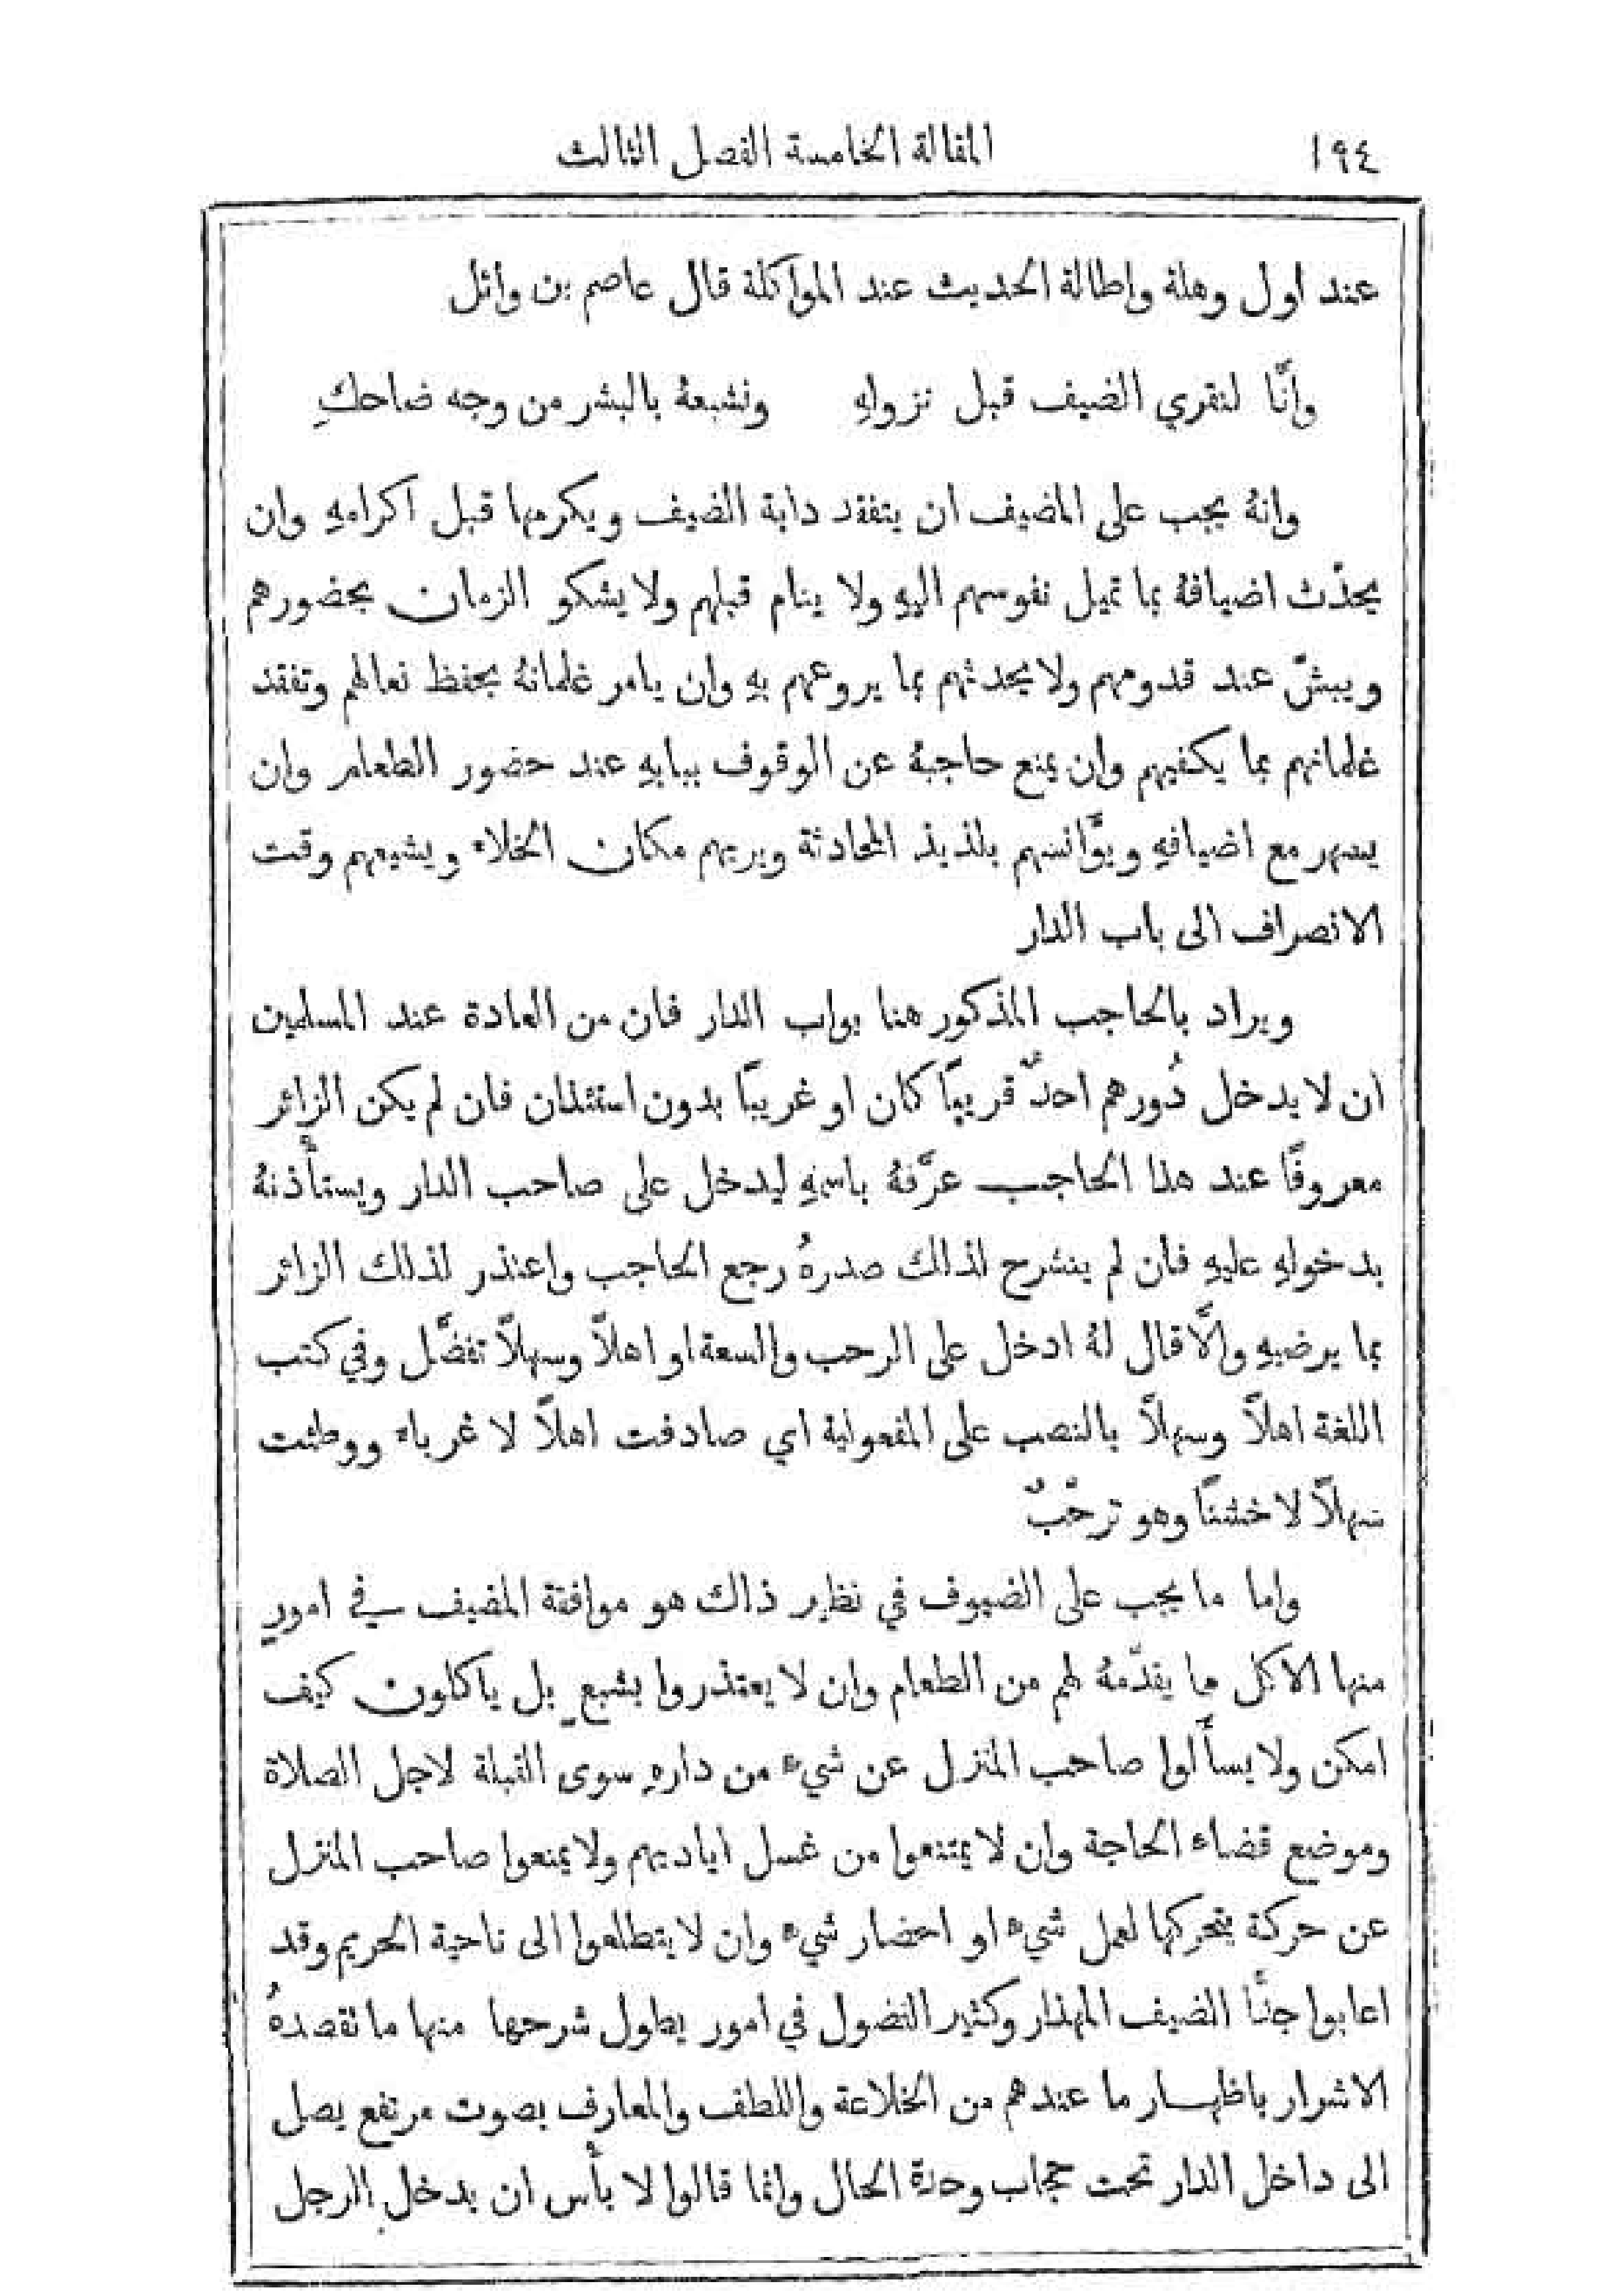 ١٩٤
المقالة الخامسة الفصل الثالث
عند اول وهلة واطالة الحديث عند المواكلة قال عاصم بن وائل
وانَّا لنقري الضيف قبل نزولهِ ونشبعهُ بالبشر من وجه ضاحكِ
وانهُ يجب على المضيف ان يتفقد دابة الضيف ويكرمها قبل اكرامهِ وان
يحدّث اضيافهُ بما تميل نفوسهم اليهِ ولا ينام قبلهم ولا يشكو الزمان بحضورهم
ويبشّ عند قدومهم ولا يحدثهم بما يروعهم بهِ وان يامر غلمانهُ بحفظ نعالهم وتفقد
غلمانهم بما يكفيهم وان يمنع حاجبهُ عن الوقوف ببابهِ عند حضور الطعام وان
يسهر مع اضيافهِ ويؤانسهم بلذيذ المحادثة ويريهم مكان الخلاء ويشيعهم وقت
الانصراف الى باب الدار
ويراد بالحاجب المذكور هنا بواب الدار فان من العادة عند المسلمين
ان لا يدخل دُورهم احدٌ قريبًا كان او غريبًا بدون استئذان فان لم يكن الزائر
معروفًا عند هذا الحاجب عرَّفهُ باسمهِ ليدخل على صاحب الدار ويستأذنهُ
بدخولهِ عليهِ فان لم ينشرح لذلك صدرهُ رجع الحاجب واعتذر لذلك الزائر
بما يرضيهِ والَّا قال لهُ ادخل على الرحب والسعة او اهلًا وسهلًا تفضَّل وفي كتب
اللغة اهلًا وسهلًا بالنصب على المفعولية اي صادفت اهلًا لا غرباء ووطئت
سهلًا لا خشنًا وهو ترحّبٌ
واما ما يجب على الضيوف في نظير ذلك هو موافقة المضيف في امورٍ
منها الاكل مما يقدّمهُ لهم من الطعام وان لا يعتذروا بشبعٍ بل ياكلون كيف
امكن ولا يسألوا صاحب المنزل عن شيء من دارهِ سوى القبلة لاجل الصلاة
وموضع قضاء الحاجة وان لا يمتنعوا من غسل اياديهم ولا يمنعوا صاحب المنزل
عن حركة يتحركها لعمل شيء او احضار شيء وان لا يتطلعوا الى ناحية الحريم وقد
اعابوا جدًّا الضيف المهذار وكثير الفضول في امور يطول شرحها منها ما تقصدهُ
الاشرار باظهار ما عندهم من الخلاعة واللطف والمعارف بصوت مرتفع يصل
الى داخل الدار تحت حجاب وحدة الحال وانما قالوا لا بأس ان يدخل الرجل